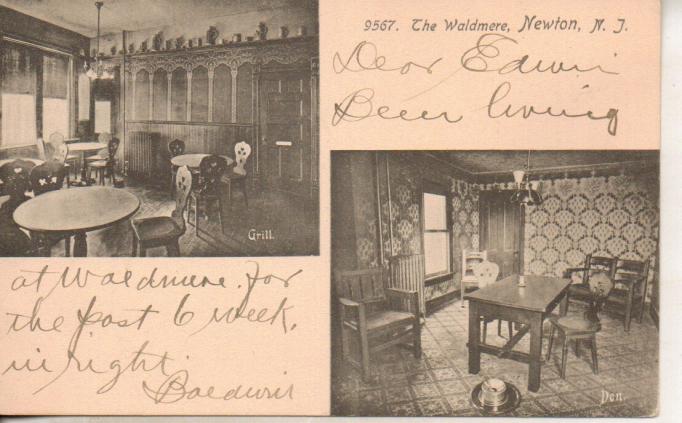 9567. The Waldmere, Newton, N. J.
Dear Edwin
Been living
Grill.
at Waldmere for
the past 6 week,
in right.
Baldwin
Den.